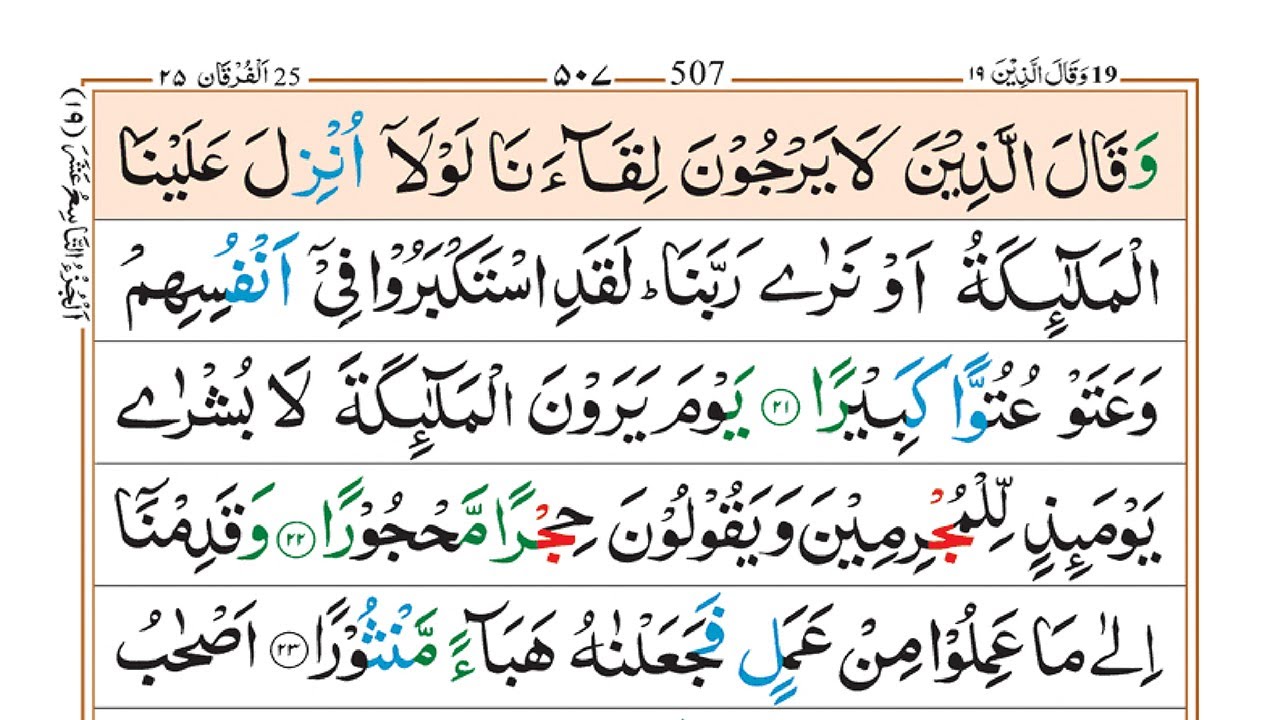 19 وَقَالَ الَّذِيْنَ ١٩ 507 ٥٠٧ 25 اَلْفُرْقَان ٢٥
وَقَالَ الَّذِيْنَ لَا يَرْجُوْنَ لِقَآءَنَا لَوْلَاۤ اُنْزِلَ عَلَيْنَا
الْمَلٰٓئِكَةُ اَوْ نَرٰى رَبَّنَا ؕ لَقَدِ اسْتَكْبَرُوْا فِيْۤ اَنْفُسِهِمْ
وَعَتَوْ عُتُوًّا كَبِيْرًا ۝٢١ يَوْمَ يَرَوْنَ الْمَلٰٓئِكَةَ لَا بُشْرٰى
يَوْمَئِذٍ لِّلْمُجْرِمِيْنَ وَيَقُوْلُوْنَ حِجْرًا مَّحْجُوْرًا ۝٢٢ وَقَدِمْنَاۤ
اِلٰى مَا عَمِلُوْا مِنْ عَمَلٍ فَجَعَلْنٰهُ هَبَآءً مَّنْثُوْرًا ۝٢٣ اَصْحٰبُ
اَلْجُزْءُ التَّاسِعُ عَشَرَ (١٩)